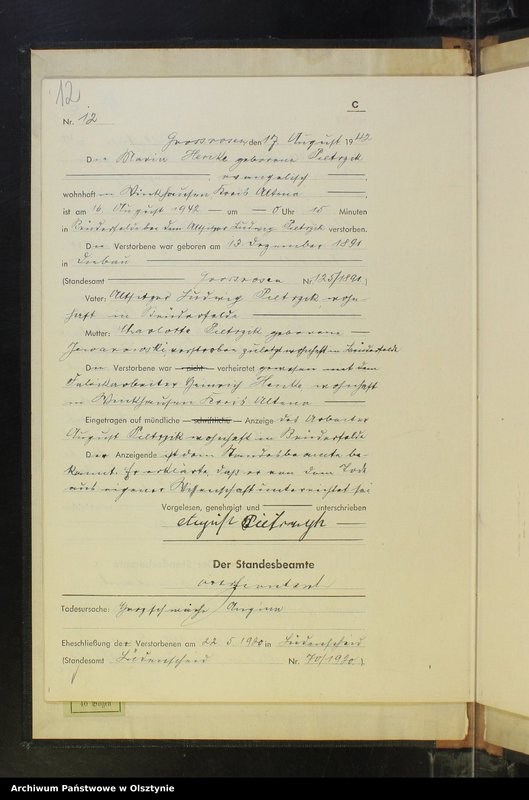 12
C
Nr. 12
Grossrosen, den 17. August 1942
Die Maria Henke geborene Pietrzik
evangelisch
wohnhaft in Winkhausen Kreis Altena
ist am 16. August 1942 um 0 Uhr 15 Minuten
in Brüderfelde bei dem Altsitzer Ludwig Pietrzik verstorben.
Die Verstorbene war geboren am 12. Dezember 1891
in
(Standesamt Grossrosen Nr. 125/1891)
Vater: Altsitzer Ludwig Pietrzik wohn-
haft in Brüderfelde
Mutter: Charlotte Pietrzik geborene
verstorben zuletzt wohnhaft in Brüderfelde
Die Verstorbene war nicht verheiratet gewesen mit dem
Fabrikarbeiter Heinrich Henke wohnhaft
in Winkhausen Kreis Altena
Eingetragen auf mündliche schriftliche Anzeige des Arbeiter
August Pietrzik wohnhaft in Brüderfelde
Der Anzeigende ist dem Standesbeamte be-
kannt. Er erklärte, daß er von dem Tode
aus eigener Wissenschaft unterrichtet sei
Vorgelesen, genehmigt und unterschrieben
August
Der Standesbeamte
Todesursache: Herzschwäche, Angina
Eheschließung der Verstorbenen am 22.5.1920 in Lüdenscheid
(Standesamt Lüdenscheid Nr. 70/1920).
10 Bogen
Archiwum Państwowe w Olsztynie